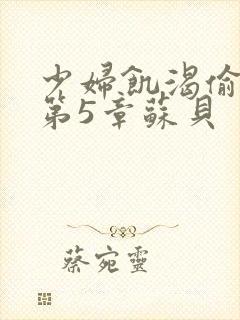 少婦飢渴偷
第5章蘇貝
蔡宛靈